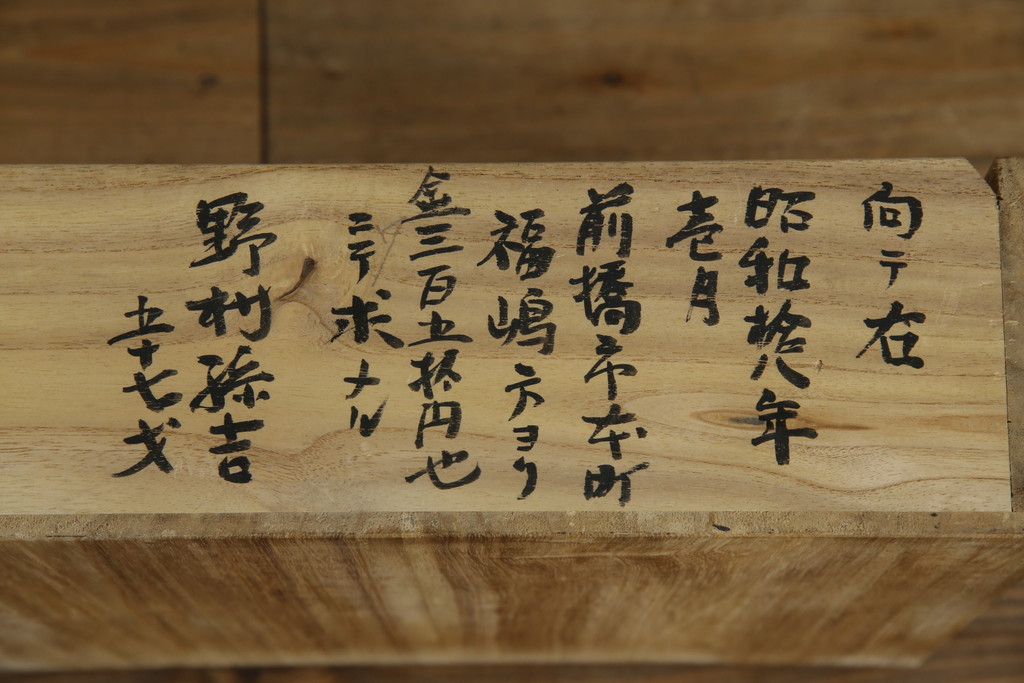 向テ右
昭和拾八年
壱月
前橋市本町
福嶋方ヨリ
金三百五拾円也
ニテ求メル
野村孫吉
五十七才